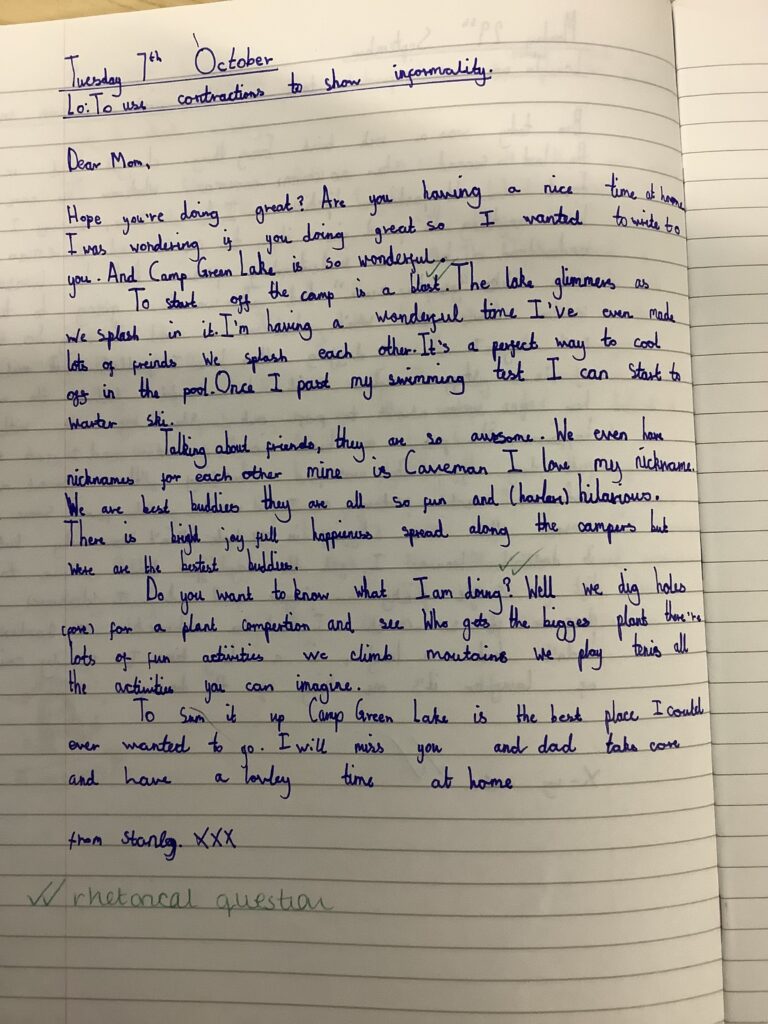 Tuesday 7th October
Lo: To use contractions to show informality.
Dear Mom,
Hope you're doing great? Are you having a nice time at home
I was wondering if you doing great so I wanted to write to
you. And Camp Green Lake is so wonderful.
To start off the camp is a blast. The lake glimmers as
we splash in it. I'm having a wonderful time I've even made
lots of freinds we splash each other. It's a perfect way to cool
off in the pool. Once I past my swimming test I can start to
warter ski.
Talking about friends, they are so awesome. We even have
nicknames for each other mine is Caveman I love my nickname.
We are best buddies they are all so fun and hilarious.
There is bright joy full happieness spread along the campers but
were are the bestest buddies.
Do you want to know what I am doing? Well we dig holes
for a plant compertion and see Who gets the bigges plant there're
lots of fun activities we climb moutains we play tenis all
the activities you can imagine.
To Sum it up Camp Green Lake is the best place I could
ever wanted to go. I will miss you and dad take care
and have a lovley time at home
from Stanley. XXX
rhetorical question